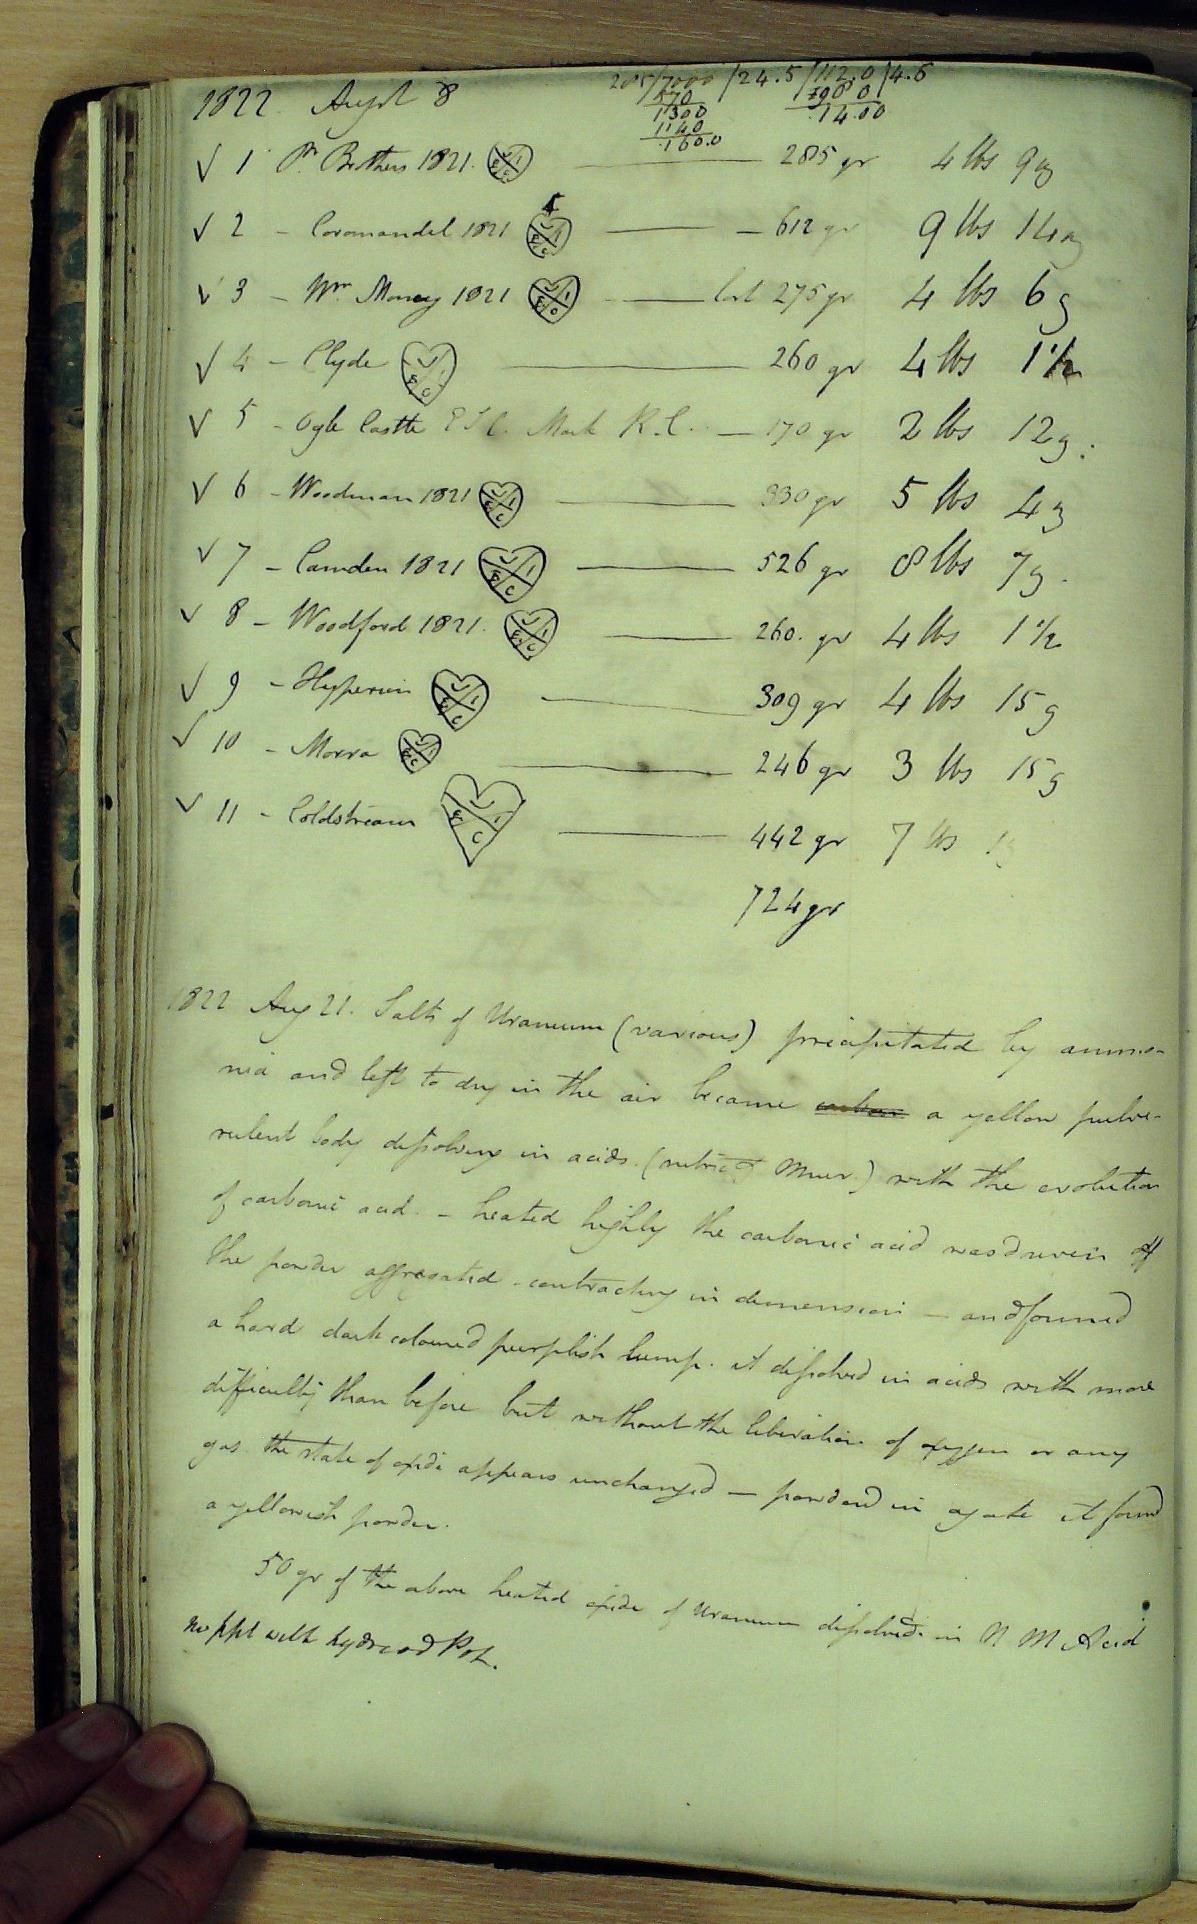 1822 Augst 8
285/7000/24.5/112.0/4.6
570
1300
1140
160.0
1400
√ 1 Pr. Brothers 1821. 285 gr 4 lbs 9 oz
√ 2 - Coromandel 1821 — 612 gr 9 lbs 14 oz
√ 3 - Wm Money 1821 lost 275 gr 4 lbs 6 oz
√ 4 - Clyde 260 gr 4 lbs 1 1/2
√ 5 - Ogle Castle E I C. Mark R.C. — 170 gr 2 lbs 12 oz.
√ 6 - Woodman 1821 330 gr 5 lbs 4 oz
√ 7 - Camden 1821 526 gr 8 lbs 7 oz.
√ 8 - Woodford 1821. 260. gr 4 lbs 1 1/2
√ 9 - Hyperion 309 gr 4 lbs 15 oz
√ 10 - Morra 246 gr 3 lbs 15 oz
√ 11 - Coldstream 442 gr 7 lbs
724 gr
1822 Aug 21. Salts of Uranium (various) precipitated by ammo-
nia and left to dry in the air became a yellow pulve-
rulent body dissolving in acids. (nitric & Mur.) with the evolution
of carbonic acid. - heated highly the carbonic acid was driven off
the powder aggregated - contracting in dimension — and formed
a hard dark coloured purplish lump. it dissolved in acids with more
difficulty than before but without the liberation of oxygen or any
gas the state of oxide appears unchanged — powdered in agate it formd
a yellowish powder.
50 gr of the above heated oxide of Uranium dissolved in N M Acid
no ppt with hydriod Pot.